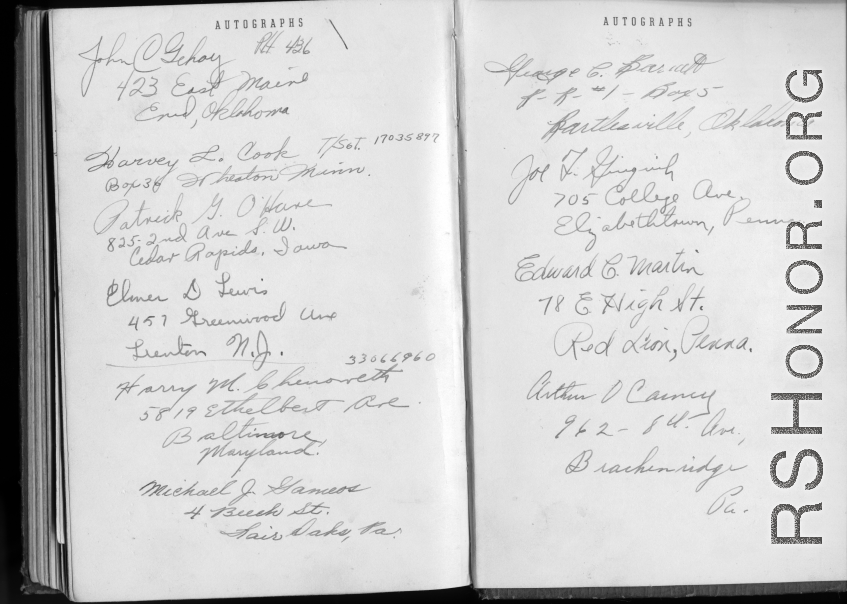 AUTOGRAPHS
John C Gehay PH 426
423 East Maine
Enid, Oklahoma
Harvey L. Cook T/Sgt. 17035897
Box 36 Wheaton Minn.
Patrick G. O'Hare
825-2nd Ave S.W.
Cedar Rapids, Iowa
Elmer D Lewis
457 Greenwood Ave
Trenton N.J.
33066960
Harry M. Chenoweth
5819 Ethelbert Ave.
Baltimore,
Maryland.
Michael J. Gameos
4 Beech St.
Fair Oaks, Pa.
AUTOGRAPHS
George C. Barnett
R-R-#1-Box 5
Bartlesville, Oklahoma
Joe F. Gingrich
705 College Ave.
Elizabethtown, Penna
Edward C. Martin
78 E High St.
Red Lion, Penna.
Arthur O Carney
962-8th Ave.,
Brackenridge
Pa.
RSHONOR.ORG